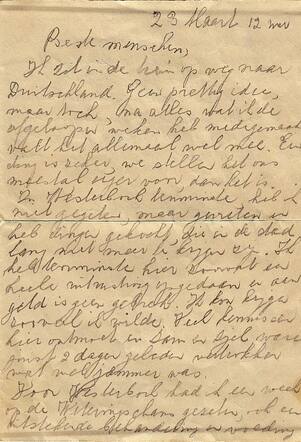 23 Maart 12 uur
Beste menschen,
Ik zit in de trein op weg naar
Duitschland. Geen prettig idee,
maar toch, na alles wat ik de
afgeloopen weken heb meegemaakt
valt het allemaal wel mee. Een
ding is zeker, we stellen het ons
meestal erger voor dan het is.
In Westerbork tenminste heb ik
niet gegeten, maar gevreten en
heb dingen gekocht, die in de stad
lang niet meer te krijgen zijn. Ik
heb tenminste hier zooveel een
heele uitrusting opgedaan en aan
geld is geen gebrek. Ik kon krijgen
zooveel ik wilde. Veel kennissen
hier ontmoet en Sam en waren
2 dagen geleden vertrokken
wat wel jammer was.
Voor Westerbork had ik een week
op de gezeten, ook een
behandeling en voeding